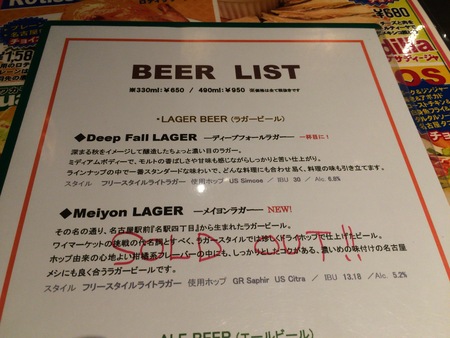 ¥680
BEER LIST
■330ml:￥650 / 490ml:￥950 ※価格は全て税抜きです
・LAGER BEER (ラガービール)
◆Deep Fall LAGER ―ディープフォールラガー― 一杯目に！
深まる秋をイメージして醸造したちょっと濃い目のラガー。
ミディアムボディーで、モルトの香ばしさや甘味も感じながらしっかりと苦い仕上がり。
ラインナップの中で一番スタンダードな味わいで、どんな料理にも合わせ易く、料理の味も引き立てます。
スタイル フリースタイルライトラガー 使用ホップ US Simcoe / IBU 30 / Alc. 6.6%
◆Meiyon LAGER ―メイヨンラガー― NEW!
その名の通り、名古屋駅前『名駅四丁目』から生まれたラガービール。
ワイマーケットの挑戦の代名詞とすべく、ラガースタイルでは珍しくドライホップで仕上げたビール。
ホップ由来の心地よい柑橘系フレーバーの中にも、しっかりとしたコクがある、濃いめの味付けの名古屋
メシにも良く合うラガービールです。
SOLD OUT!!
スタイル フリースタイルライトラガー 使用ホップ GR Saphir US Citra / IBU 13.18 / Alc. 5.2%
ALE BEER (エールビール)